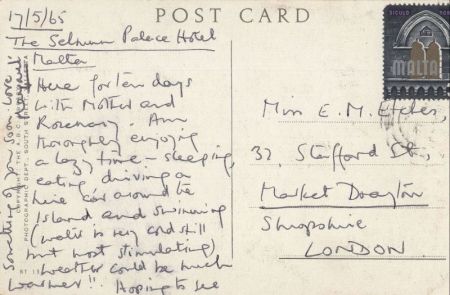 POST CARD
17/5/65
The Selmun Palace Hotel
Malta
Here for ten days
with Mother and
Rosemary. Am
thoroughly enjoying
a lazy time - sleeping,
eating, driving a
hire car around the
Island and swimming
(water is very cold still
but most stimulating)
weather could be much
warmer!! Hoping to see
Something of you soon. Love
SICULO NOR
MALTA
Miss E. M.
32, Stafford St.,
Market Drayton
Shropshire
LONDON
COPYRIGHT THE A.B.C.
PHOTOGRAPHIC DEPT. SOUTH STREET